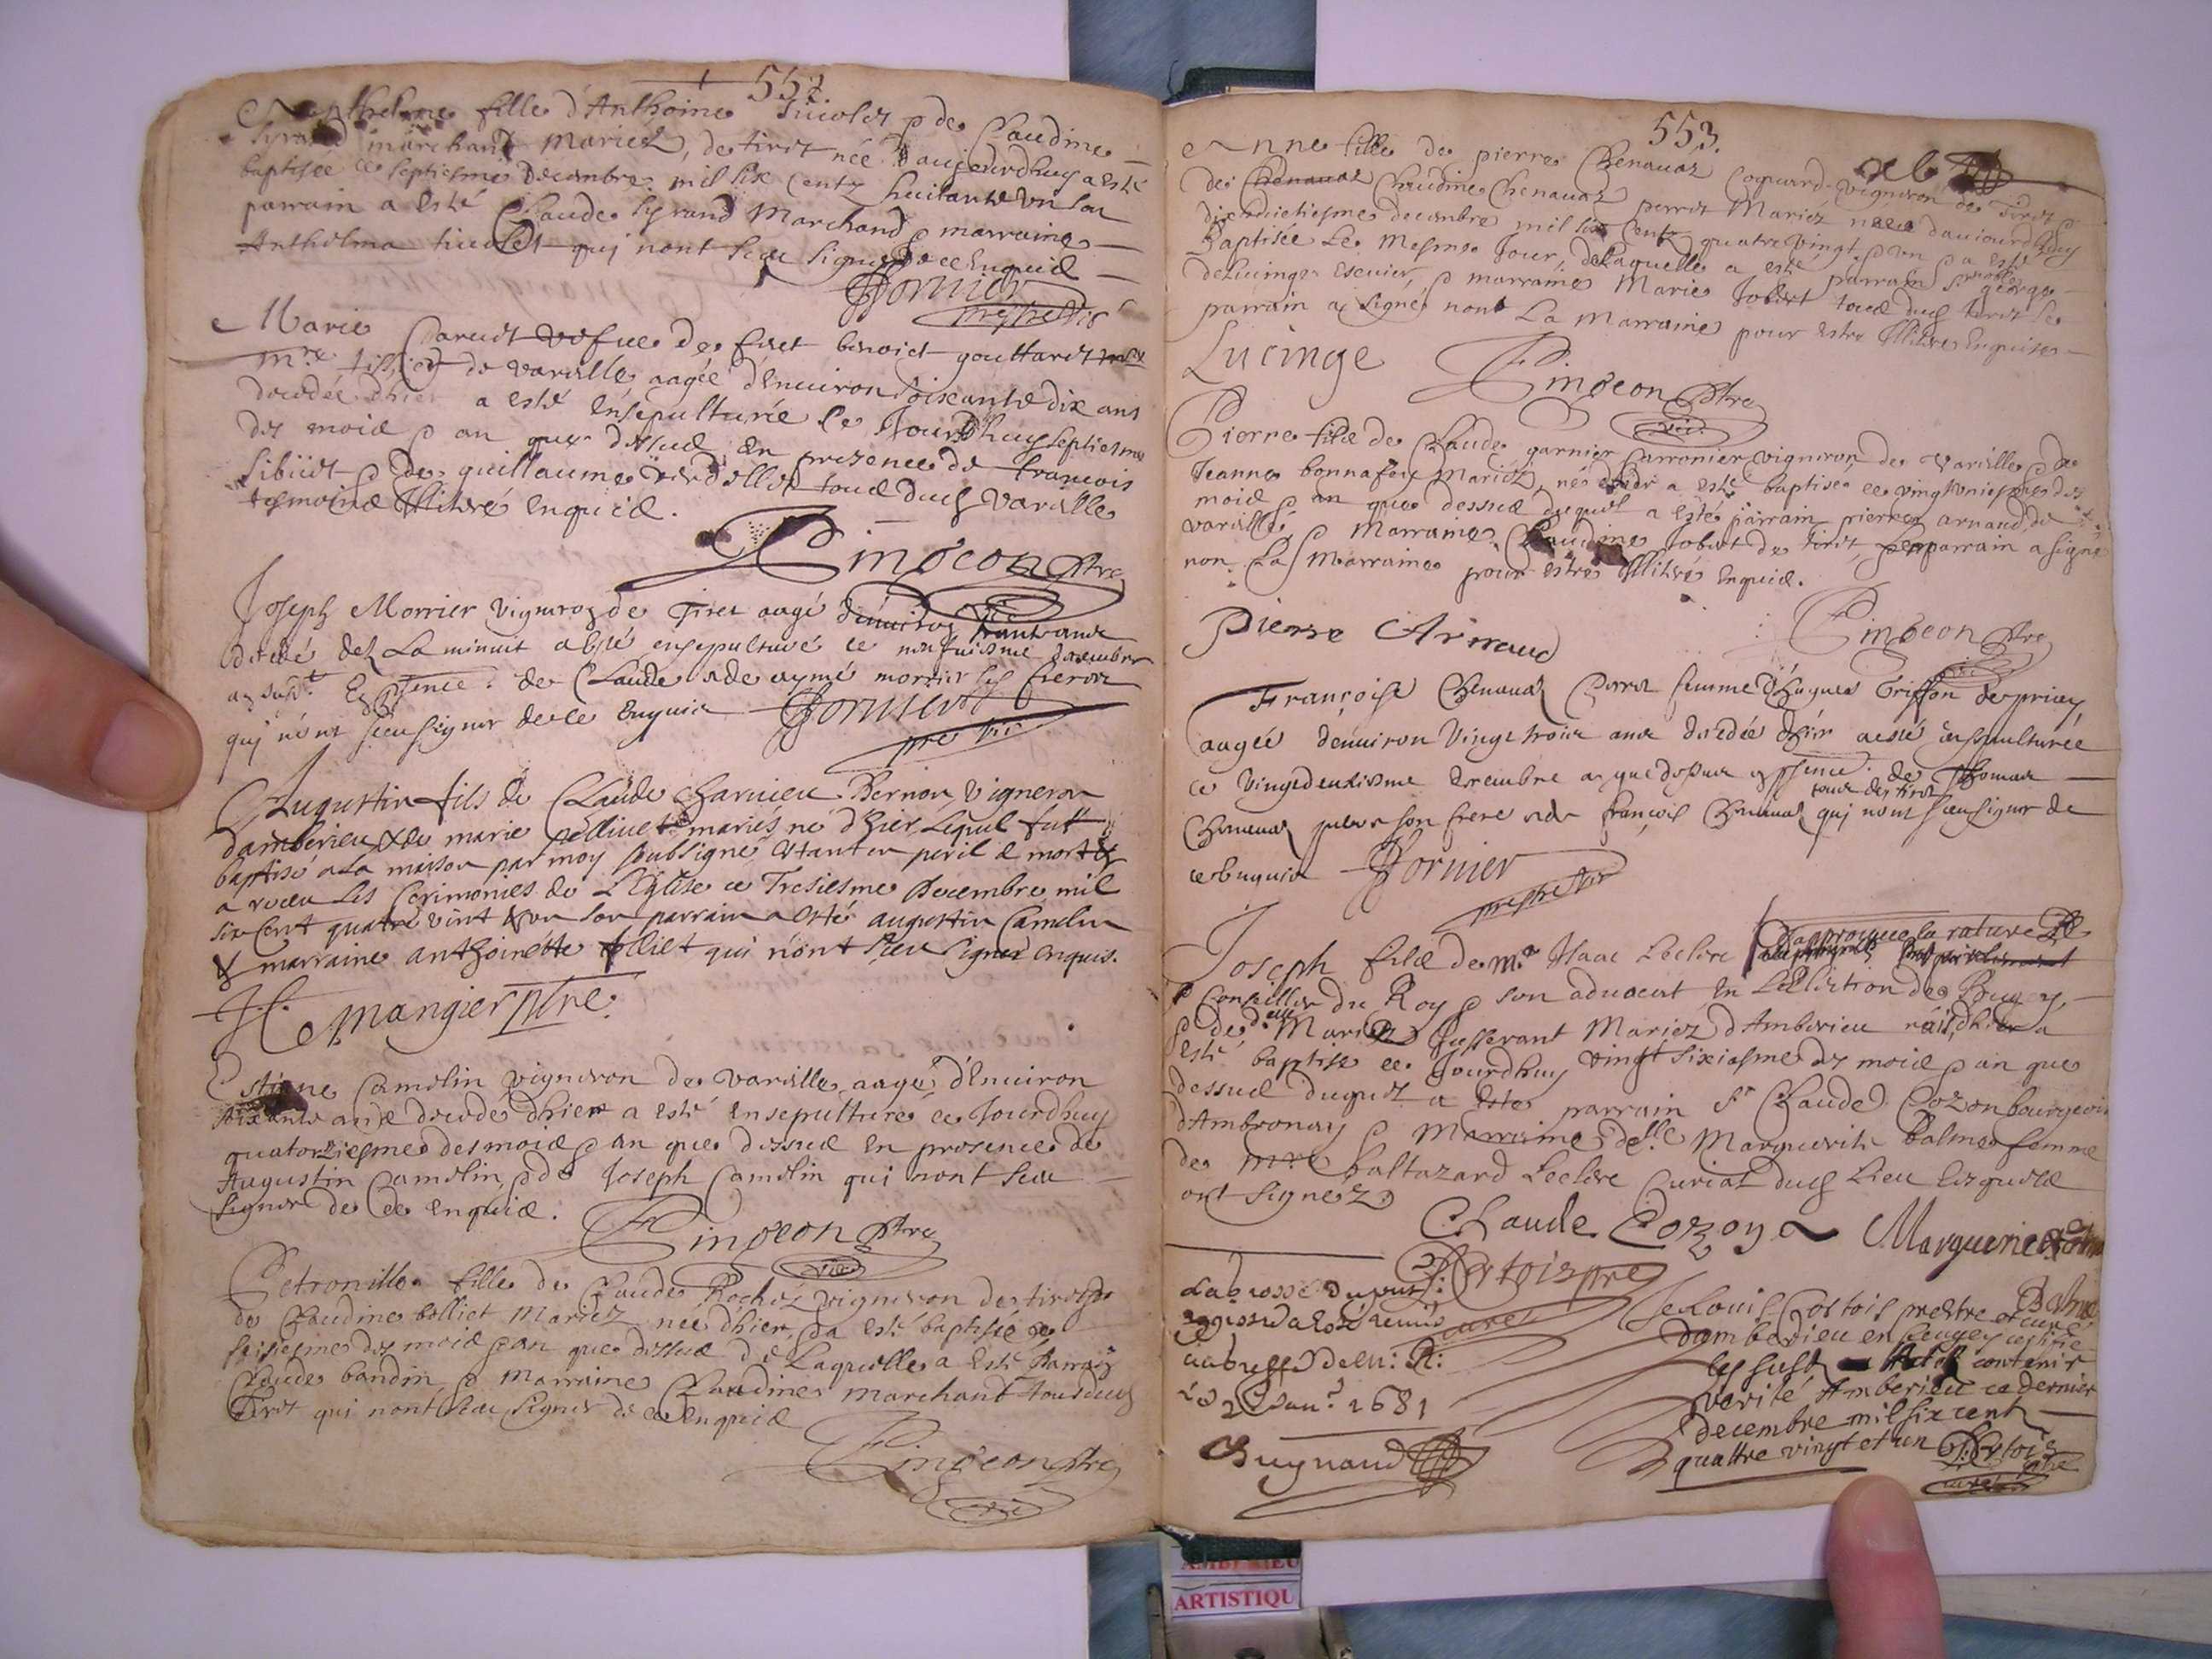 552.
Anthelme fille d'Anthoine Tiuolet & de Claudine
Tyrand marchand Mariez, de tiret née d'aujourdhuy a esté
baptisée ce septiesme decembre mil six centz huitante un son
parrain a esté Claude Tyrand Marchand & marraine
Anthelma tiuolet qui nont sceu signer de ce Enquis
Fornier
prestre vic
Marie Caruet vefue de feut benoict gouttaret
mre tissier de vareille aagée d'Enuiron soixante dix ans
decedée dhier a esté Ensepulturée ce Jourdhuy septiesme
des mois & an que dessus En presence de francois
Sibuet & de guillaume verdellet tous dud vareille
tesmoins Illitéré enquis.
Pingeon ptre
vic
Joseph Morrier vigneron de Tiret aagé denuiron trante ans
decedé dez la minuit a esté ensepulturé ce neufuiesme decembre
an susdt En psence de Claude & de aymé morrier ses freres
qui nont sceu signer de ce enquis Fornier
pre vic
Augustin fils de Claude Charuieu Bernon, Vigneron
d'amberieu & de marie pelliuet mariés né d'hier Lequel fut
baptisé a La maison par moy soubsigné estant en peril de mort &
a receu Les Cerimonies de L'Eglise ce Tresiesme Decembre mil
six Cent quatre vint & un son parrain a esté augustin Camelin
& marraine anthoinette pelliet qui n'ont sceu signer enquis.
Mangier ptre.
Estienne Camelin vigneron de vareille aagé d'Enuiron
soixante ans decedé dhier a esté ensepulturé ce Jourdhuy
quatorziesme des mois & an que dessus en presence de
Augustin Camelin & de Joseph Camelin qui nont sceu
signer de ce enquis.
Pingeon ptre
vic
Petronille fille de Claude Rochez vigneron de tiret &
de Claudine balliet Mariez née dhier, & a esté baptisée ce
seiziesme des mois & an que dessus de Laquelle a esté Parrain
Claude bandin & Marraine Claudine marchant tous dud
Tiret qui nont sceu signer de ce enquis
Pingeon ptre
vic
553.
Anne fille de pierre Chenauaz Coquard vigneron de Tiret &
de Claudine Chenauaz perret Mariez née daujourdhuy
dixhuictiesme decembre mil six Centz quatre vingt & un & a esté
Baptisée Le Mesme Jour, de Laquelle a esté parrain Sr noble george
deLucinge escuier, & marraine Marie Jobert tous dud tiret Le
parrain a signé non La Marraine pour estre Illitéré Enquise
Lucinge
Pingeon ptre
vic
Pierre fils de Claude garnier Carronier vigneron de vareille & de
Jeanne bonnafoy Mariez, né dhier a esté baptisé ce vingtuniesme des
mois & an que dessus duquel a esté parrain pierre arnaud de
vareille & Marraine Claudine Jobert de tiret, Le parrain a signé
non La Marraine pour estre Illitéré Enquis.
Pierre Arnaud
Pingeon ptre
vic
Françoise Chenauaz Perret femme d'hugues Triffon de priay
aagée denuiron Vingt trois ans decedée dhier a esté ensepulturée
ce Vingtdeuxiesme decembre an que dessus en psence de Thomas
Chenauaz perret son frere & de françois Chenauaz tous de tiret qui nont sceu signer de
ce enquis Fornier
prestre vic
Joseph fils de mr Isaac Leclerc J'approuue la rature
& Conseiller du Roy & son aduocat En L'Election de Bugey,
& de delle Marie Jusserant Mariez d'Amberieu né dhier a
esté baptisé ce Jourdhuy vingt sixiesme des mois & an que
dessus duquel a esté parrain Sr Claude Cozon bourgeois
d'Ambronay & Marraine delle Marguerite Balme femme
de mre baltazard Leclerc Curial dud Lieu Enquis
ont signez
Claude Cozon Marguerite
Balme
Cortois pre
curé
Je Louis Cortois prestre et curé
d'amberieu en beugey certifie
les susd Actes contenir
verité Amberieu ce dernier
decembre mil six cent
quattre vingt et un Cortois
ptre
curé
Janr 1681
Buynand
ARTISTIQU